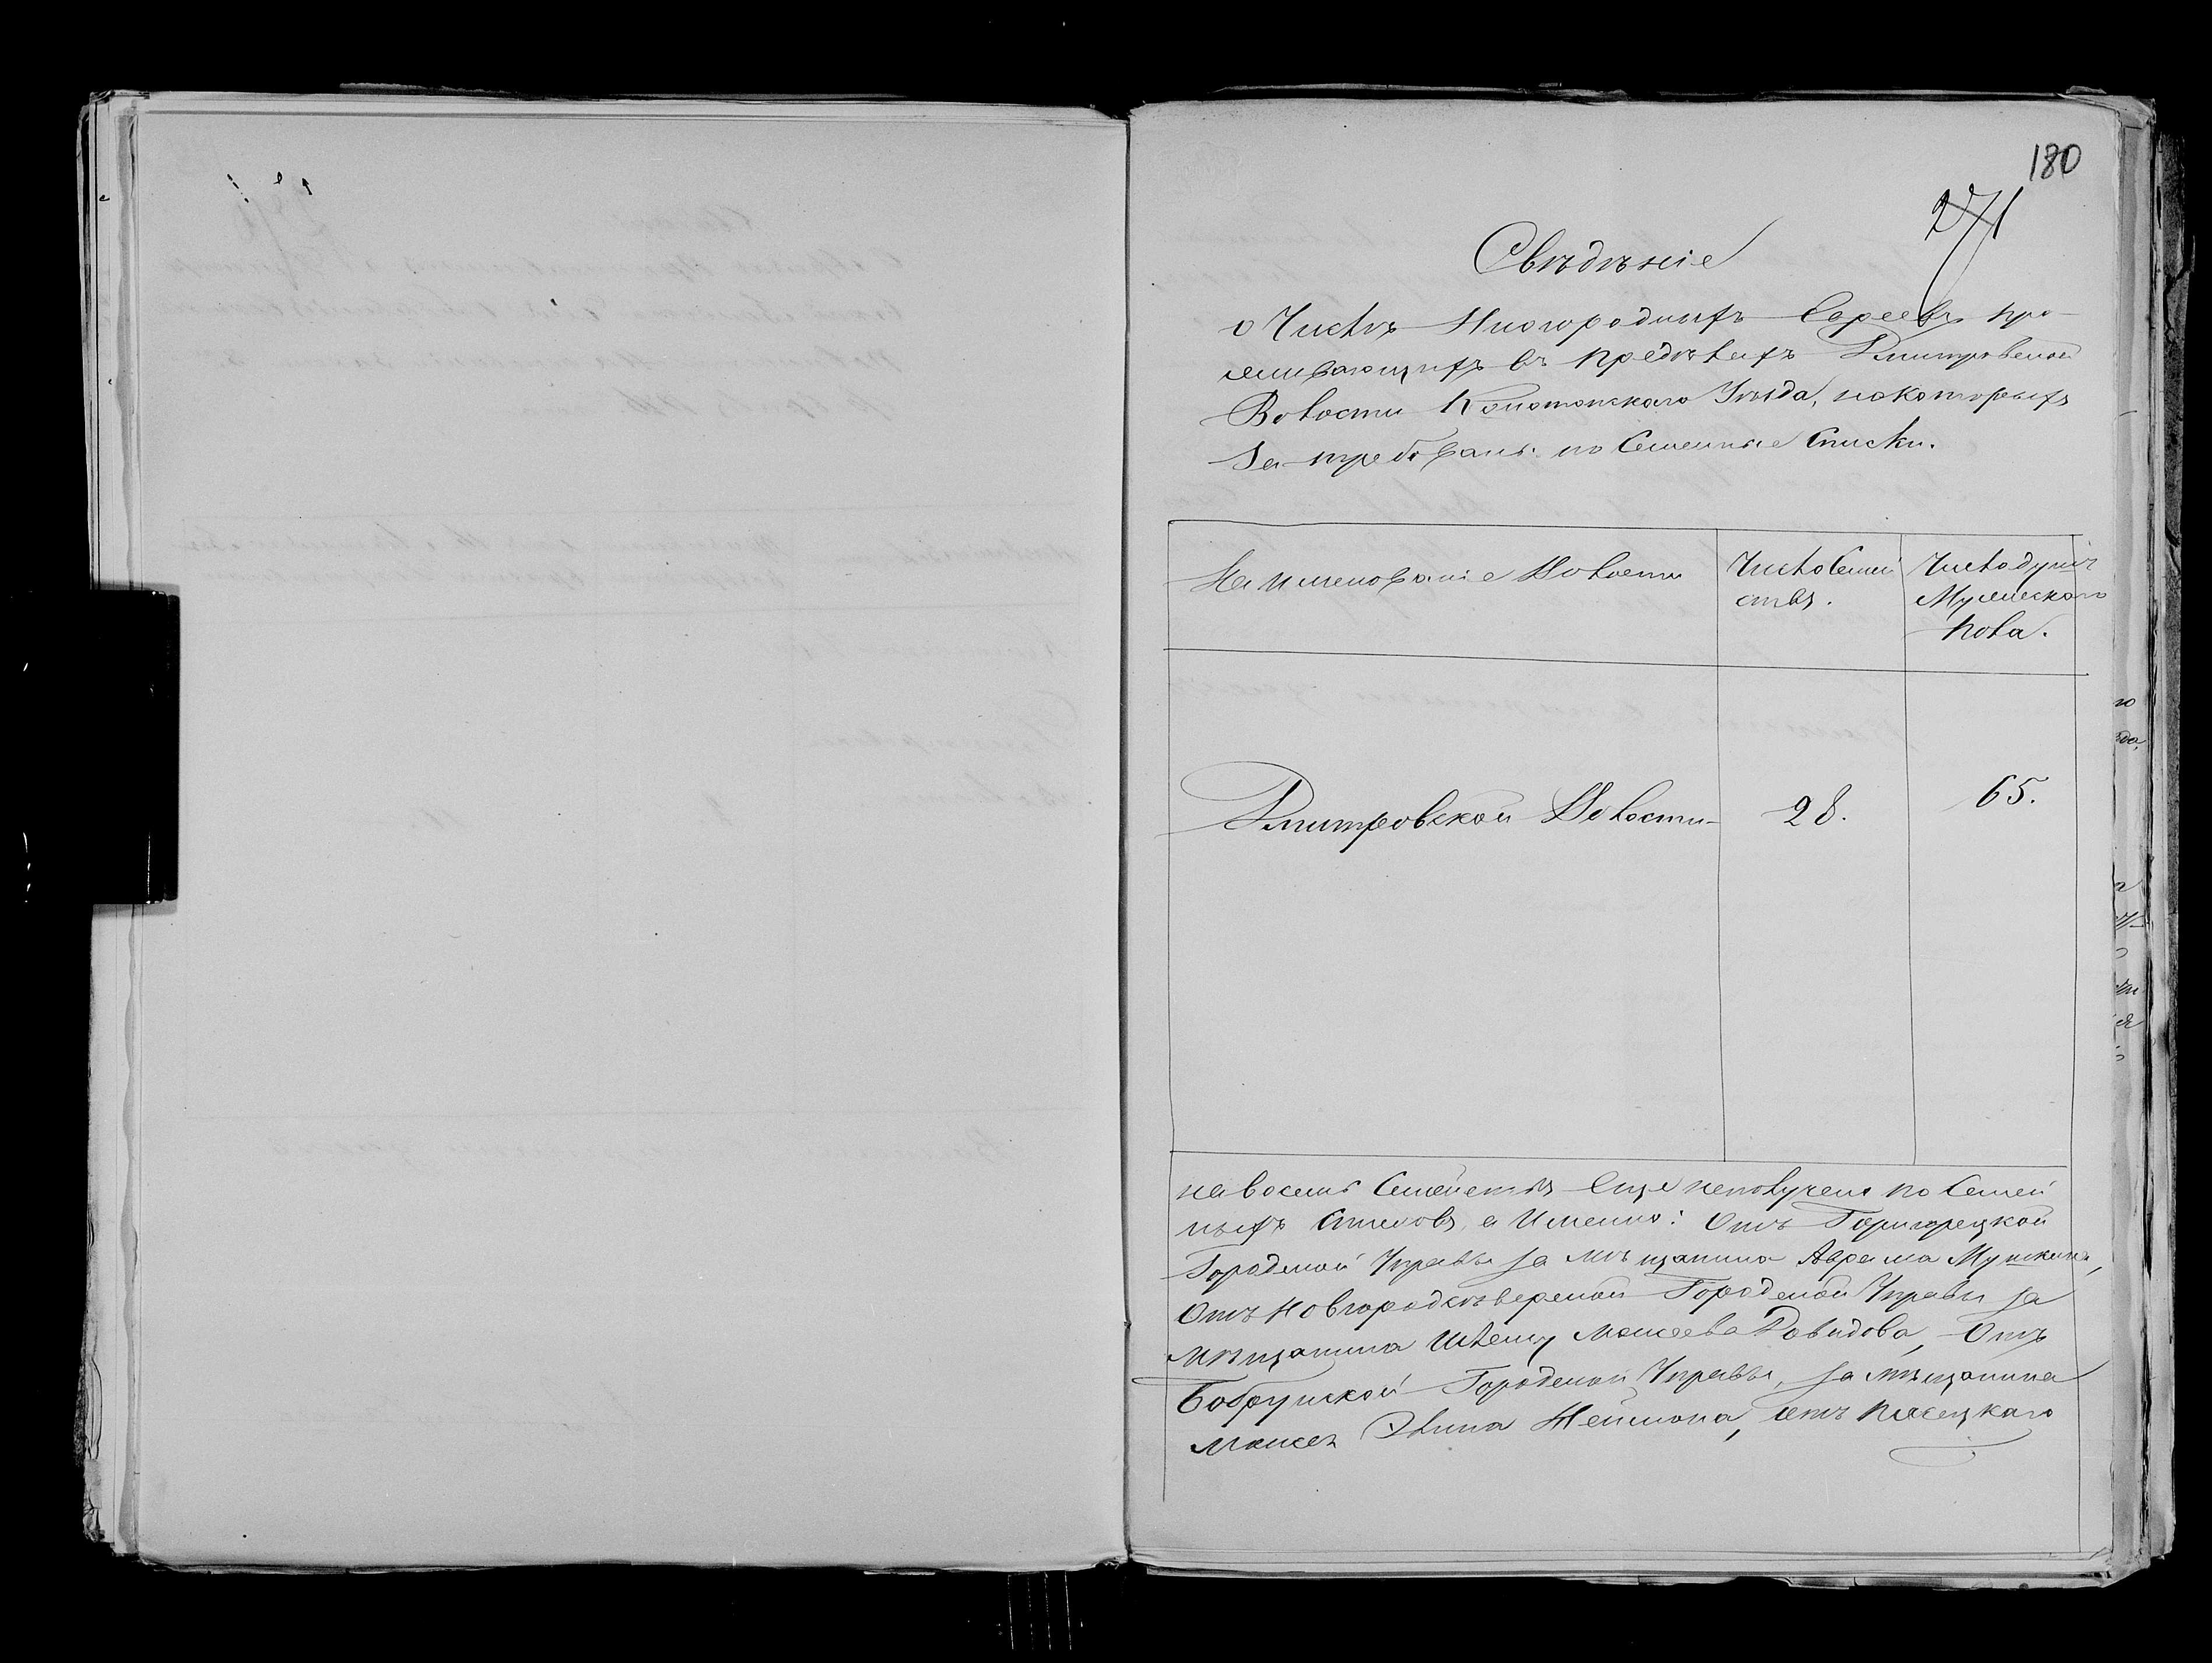 180
271
Свѣдѣніе
о Числѣ Иногродныхъ Евреевъ про-
живающихъ въ предѣлахъ Дмитровской
Волости Конотопскаго Уѣзда, на которыхъ
Затребованы по Семейные Списки.
Наименованіе Волости
Число Семей
ствъ.
Число душъ
Мужескаго
пола.
Дмитровской Волости
28.
65.
на восемь Семействъ Еще не получено по Семей
ныхъ Списковъ, а Именно: Отъ Горигорецкой
Городской Управы за мѣщанина Аврама Мушкина,
Отъ Новгородсѣверской Городской Управы за
мѣщанина Шлему Моисеева Давидова, Отъ
Бобруйской Городской Управы, за мѣщанина
Моисея Элина Неймона, отъ